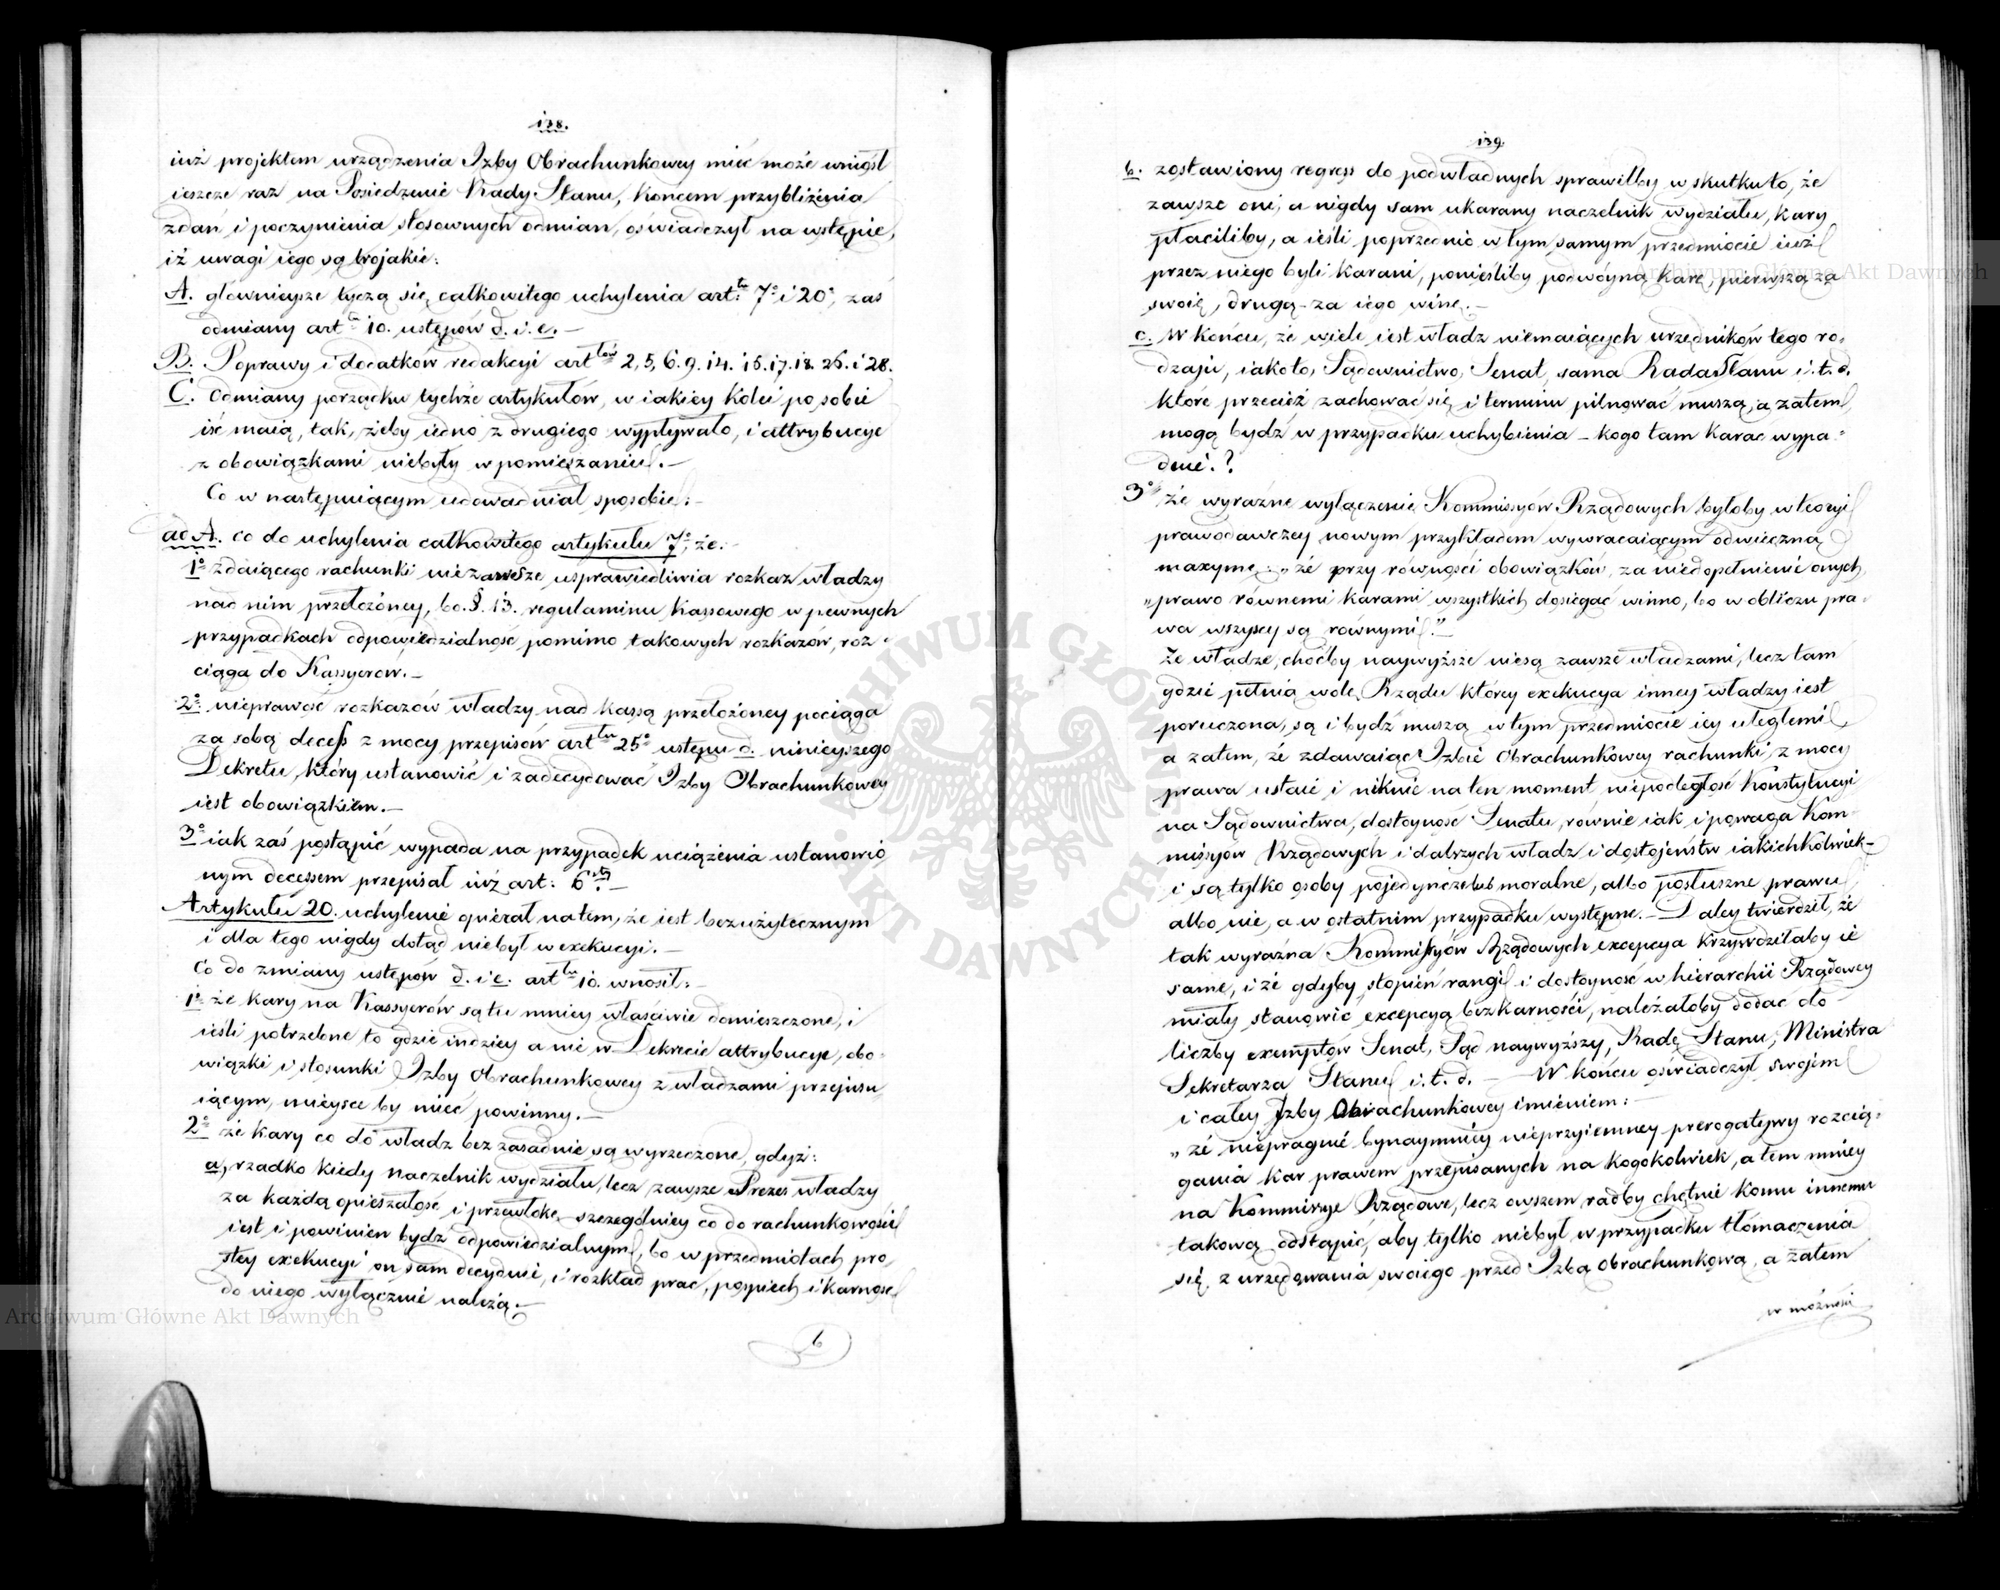 138.
iuż projektem urządzenia Izby Obrachunkowey mieć może wniósł
ieszcze raz na Posiedzenie Rady Stanu, końcem przybliżenia
zdań i poczynienia stosownych odmian, oświadczył na wstępie,
iż uwagi iego są trojakie:
A. głównieysze tyczą się całkowitego uchylenia art:łu 7o i 20o, zaś
odmiany artłu 10. ustępów d. i. e. –
B. Poprawy i dodatków redakcyi artłów 2, 5, 6. 9. 14. 15. 17. 18. 26. i 28.
C. Odmiany porządku tychże artykułów, w iakiey kolei po sobie
iść maią, tak, żeby iedno z drugiego wypływało, i attrybucye
z obowiązkami niebyły w pomieszaniu. –
Co w następuiącym udowadniał sposobie: –
ad A. co do uchylenia całkowitego artykułu 7o, że: –
1o zdaiącego rachunki nie zawsze usprawiedliwia rozkaz władzy
nad nim przełożoney, bo §. 13. regulaminu Kassowego w pewnych
przypadkach odpowiedzialność pomimo takowych rozkazów, roz-
ciąga do Kassyerow. –
2o nieprawość rozkazów władzy nad kassą przełożoney pociąga
za sobą decess z mocy przepisów artłu 25o ustępu d. ninieyszego
Dekretu, który ustanowić i zadecydować Izby Obrachunkowey
iest obowiązkiem. –
3o iak zaś postąpić wypada na przypadek uciążenia ustanowio
nym decessem przepisał iuż art: 6ty. –
Artykułu 20. uchylenie opierał na tem, że iest bezużytecznym
i dla tego nigdy dotąd niebył w exekucyi. –
Co do zmiany ustępów d. i e. artłu 10. wnosił: –
1o że kary na Kassyerów są tu mniey właściwie domieszczone, i
ieśli potrzebne to gdzie indziey a nie w Dekrecie attrybucye, obo-
wiązki i stosunki Izby Obrachunkowey z władzami przepisu
iącym, mieysce by mieć powinny. –
2o że kary co do władz bezzasadnie są wyrzeczone, gdyż:
a, rzadko kiedy Naczelnik wydziału, lecz zawsze Prezes władzy
za każdą opieszałość i przewłokę szczególniey co do rachunkowości
iest i powinien bydź odpowiedzialnym, bo w przedmiotach pro-
stey exekucyi on sam decyduie, i rozkład prac, pospiech i karność
do niego wyłącznie należą. –
b
139.
b. zostawiony regress do podwładnych sprawiłby w skutku to, że
zawsze oni, a nigdy sam ukarany naczelnik wydziału, kary
płaciliby, a ieśli poprzednio w tym samym przedmiocie iuż
przez niego byli karani, ponieśliby podwóyną karę, pierwszą za
swoię, drugą za iego winę. –
c. W końcu, że wiele iest władz niemaiących urzędników tego ro-
dzaju, iako to, Sądownictwo, Senat, sama Rada Stanu i. t. d.
które przecież zachować się i terminu pilnować muszą, a zatem
mogą bydź w przypadku uchybienia – kogo tam karać wypa-
dnie.?
3o że wyraźne wyłączenie Kommissyów Rządowych byłoby w teoryi
prawodawczey nowym przykładem wywracaiącym odwieczną
maxymę: „że przy równości obowiązków, za niedopełnienie onych
„prawo równemi karami wszystkich dosięgać winno, bo w obliczu pra-
wa wszyscy są równymi." –
Że władze, choćby naywyższe niesą zawsze władzami, lecz tam
gdzie pełnią wolę Rządu którey exekucya inney władzy iest
poruczona, są i bydź muszą w tym przedmiocie iey uległemi
a zatem, że zdawaiąc Izbie Obrachunkowey rachunki, z mocy
prawa ustaie i niknie na ten moment, niepodległość Konstytucyi
na Sądownictwa, dostoyność Senatu, rownie iak i powaga Kom-
missyów Rządowych i dalszych władz i dostojeństw iakichkolwiek –
i są tylko osoby pojedyncze lub moralne, albo posłuszne prawu
albo nie, a w ostatnim przypadku występne. – Daley twierdził, że
tak wyraźna Kommissyów Rządowych excepcya krzywdziłaby ie
same, i że gdyby stopień rangi i dostoyność w hierarchii Rządowey
miały stanowić excepcyą bezkarności, należałoby dodać do
liczby exemptów Senat, Sąd naywyższy, Radę Stanu, Ministra
Sekretarza Stanu i. t. d. – W końcu oświadczył swojem
i całey Izby Obrachunkowey imieniem: –
„że niepragnie bynaymniey nieprzyiemney prerogatywy rozcią-
gania kar prawem przepisanych na kogokolwiek, a tem mniey
na Kommissye Rządowe, lecz owszem radby chętnie komu innemu
takową odstąpić, aby tylko niebył w przypadku tłómaczenia
się z urzędowania swoiego przed Izbą Obrachunkową, a zatem
w możności
Archiwum Główne Akt Dawnych
Archiwum Główne Akt Dawnych
ARCHIWUM GŁÓWNE AKT DAWNYCH